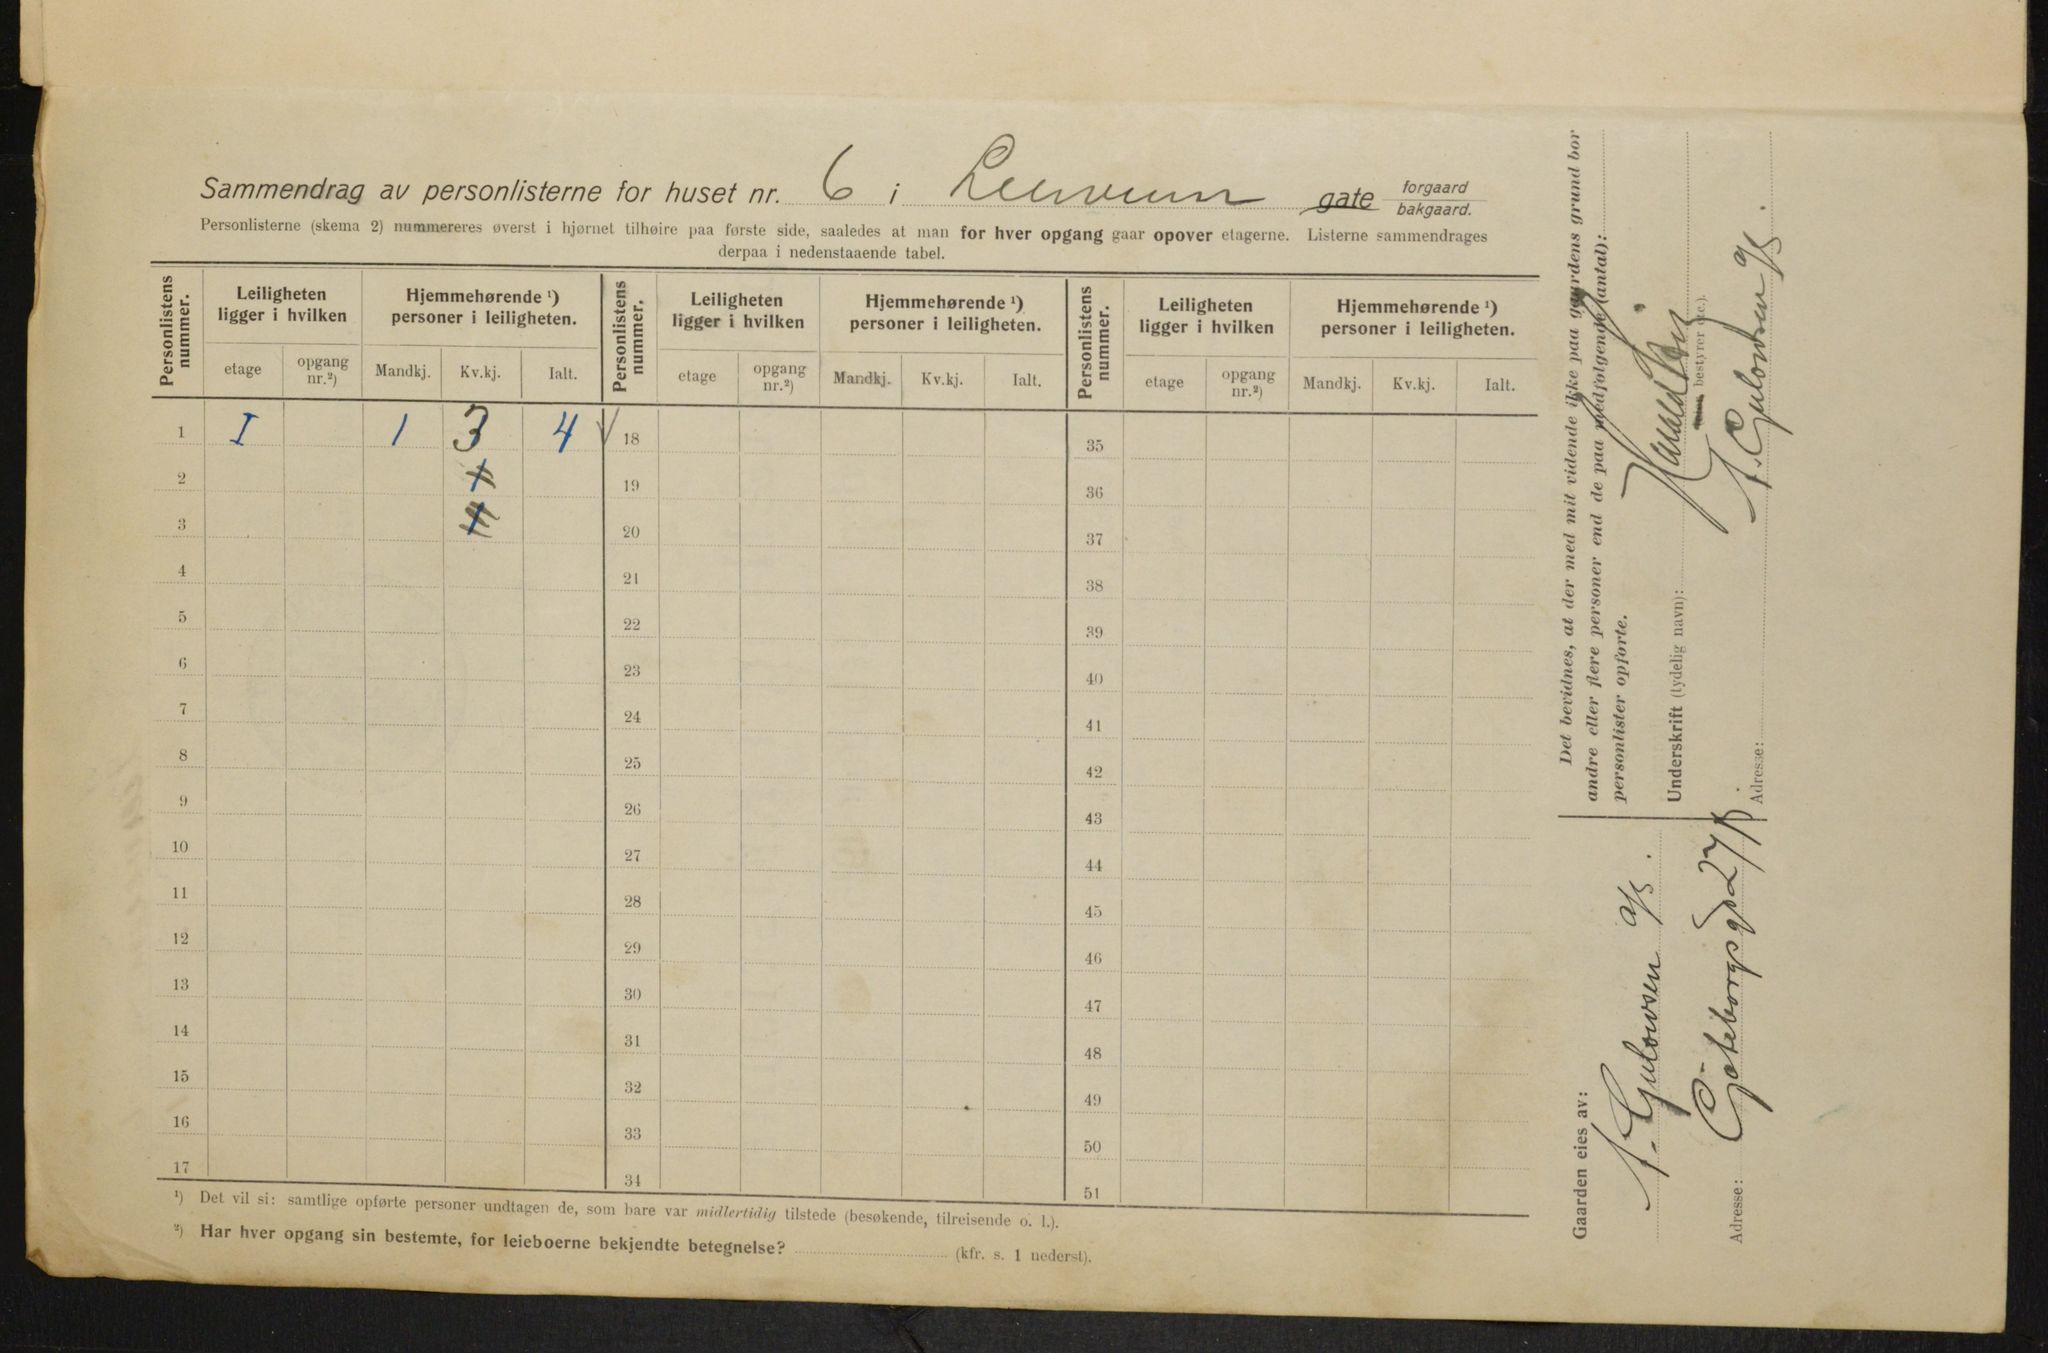 Sammendrag av personlisterne for huset nr. 6 i gate forgaard bakgaard.
Personlisterne (skema 2) nummereres øverst i hjørnet tilhøire paa første side, saaledes at man for hver opgang gaar opover etagerne. Listerne sammendrages
derpaa i nedenstaaende tabel.
Personlistens nummer. Leiligheten ligger i hvilken Hjemmehørende ¹) personer i leiligheten. Personlistens nummer. Leiligheten ligger i hvilken Hjemmehørende ¹) personer i leiligheten. Personlistens nummer. Leiligheten ligger i hvilken Hjemmehørende ¹) personer i leiligheten.
etage opgang nr.²) Mandkj. Kv.kj. Ialt. etage opgang nr.²) Mandkj. Kv.kj. Ialt. etage opgang nr.²) Mandkj. Kv.kj. Ialt.
1 I 1 3 4 18 35
2 19 36
3 20 37
4 21 38
5 22 39
6 23 40
7 24 41
8 25 42
9 26 43
10 27 44
11 28 45
12 29 46
13 30 47
14 31 48
15 32 49
16 33 50
17 34 51
¹) Det vil si: samtlige opførte personer undtagen de, som bare var midlertidig tilstede (besøkende, tilreisende o. l.).
²) Har hver opgang sin bestemte, for leieboerne bekjendte betegnelse? (kfr. s. 1 nederst).
Gaarden eies av:
A. Gulowsen a/s.
Adresse: Göteborgsgd 27
Det bevidnes, at der med mit vidende ikke paa gaardens grund bor
andre eller flere personer end de paa medfølgende (antal):
personlister opførte.
Underskrift (tydelig navn):
bestyrer etc.).
Adresse: A. Gulowsen a/s.